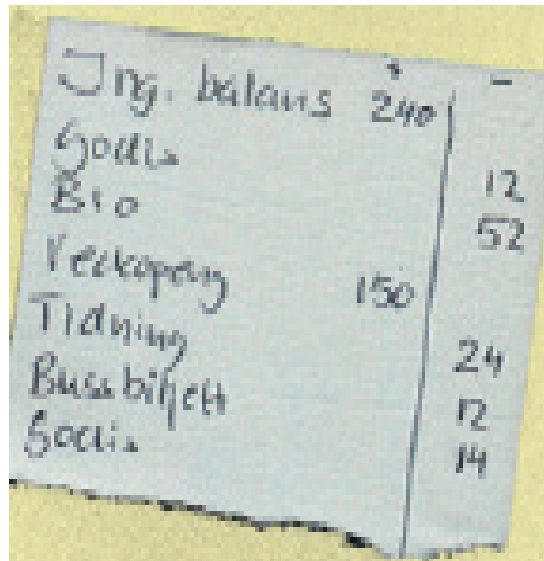 + -
Ing. balans 240
Godis 12
Bio 52
Veckopeng 150
Tidning 24
Bussbiljett 12
Godis 14